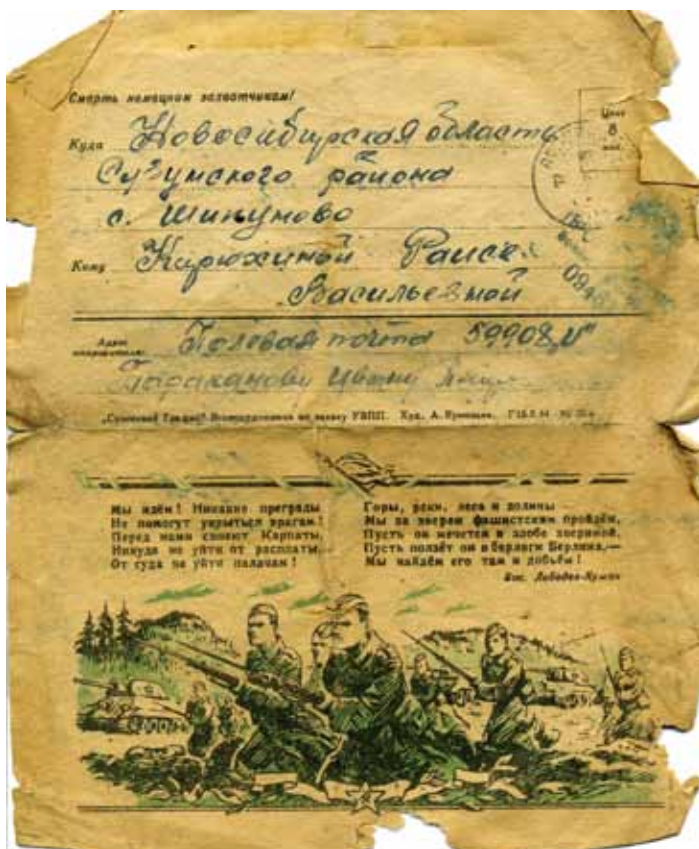 Смерть немецким захватчикам!
Цена
8
коп.
Куда Новосибирская область
Сузунского района
с. Шипуново
Кому Кирюхиной Раисе
Васильевной
0946
Адрес
отправителя: Полевая почта 59908 „И"
Тараканову Ивану
Худ. А.
Мы идём! Никакие преграды
Не помогут укрыться врагам!
Перед нами синеют Карпаты,
Никуда не уйти от расплаты,
От суда не уйти палачам!
Горы, реки, леса и долины
Мы за зверем фашистским пройдём,
Пусть он мечется в злобе звериной,
Пусть ползёт он в берлоги Берлина,—
Мы найдём его там и добьём!
Вас. Лебедев-Кумач